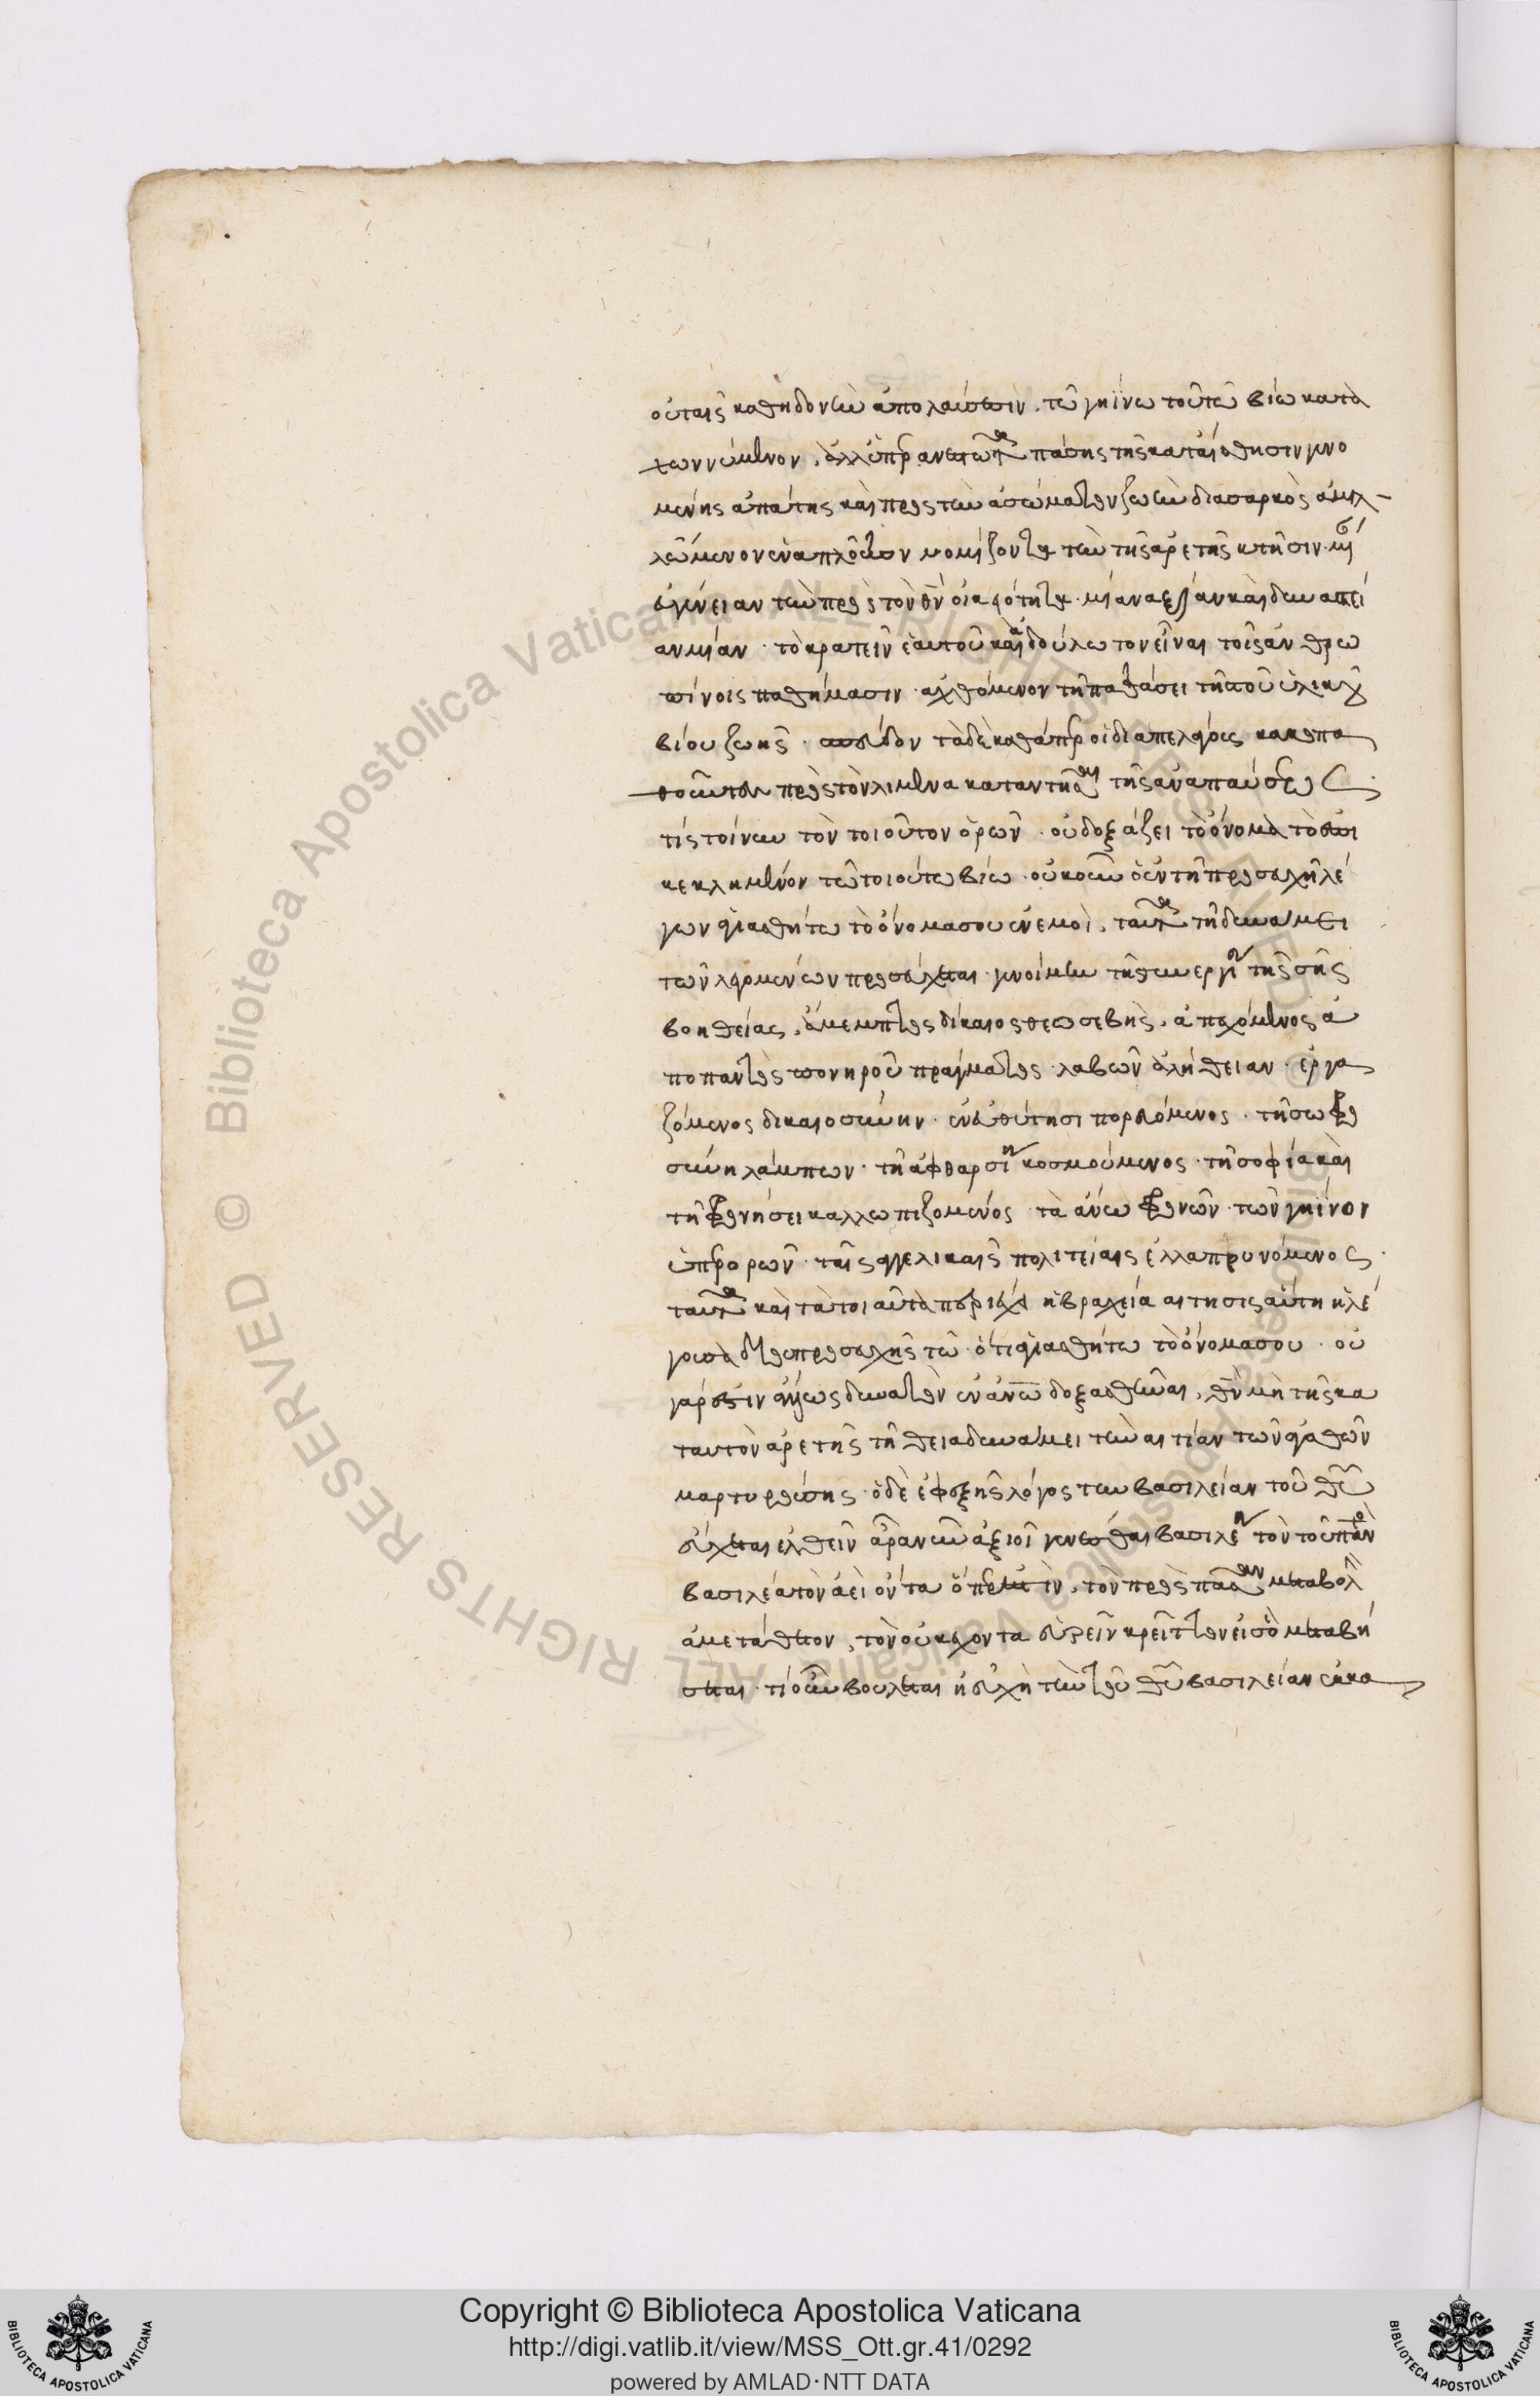 οὐ ταῖς καθηδονὴν ἀπολαύσεσιν, τῷ γηΐνῳ τούτῳ βίῳ κατα
χωννύμενον, ἀλλ' ὑπεράνω πάσης τῆς κατ' αἴσθησιν γινο
μένης ἀπάτης καὶ πρὸς τὴν ἀσώματον ζωὴν διὰ σαρκὸς ἁμιλ
λώμενον ἕνα πλοῦτον νομίζοντα τὴν τῆς ἀρετῆς κτῆσιν. μίαν
εὐγένειαν τὴν πρὸς τὸν θν οἰκειότητα. μίαν ἀξίαν καὶ δυναστεί
αν μίαν. τὸ κρατεῖν ἑαυτοῦ καὶ ἀδούλωτον εἶναι τοῖς ἀνθρω
πίνοις παθήμασιν. ἀχθόμενον τῇ παρατάσει τῆς τοῦ ὑλικοῦ
βίου ζωῆς. σπεύδοντα δὲ καθάπερ οἱ διὰ πελάγους κακοπα
θοῦντες πρὸς τὸν λιμένα καταντῆσαι τῆς ἀναπαύσεως.
τίς τοίνυν τὸν τοιοῦτον ὁρῶν. οὐ δοξάζει τὸ ὄνομα τὸ ἐπι
κεκλημένον τῷ τοιούτῳ βίῳ. οὐκοῦν ὁ ἐν τῇ προσευχῇ λέ
γων ἁγιασθήτω τὸ ὄνομα σου ἐν ἐμοὶ, ταῦτα τῇ δυνάμει
τῶν λεγομένων προσεύχεται. γενοίμην τῇ συνεργίᾳ τῆς σῆς
βοηθείας, ἄμεμπτος δίκαιος θεοσεβής, ἀπεχόμενος ἀ
πὸ παντὸς πονηροῦ πράγματος. λαβῶν ἀλήθειαν. ἐργα
ζόμενος δικαιοσύνην. ἐν εὐθύτητι πορευόμενος. τῇ σωφρο
σύνῃ λάμπων. τῇ ἀφθαρσίᾳ κοσμούμενος. τῇ σοφίᾳ καὶ
τῇ φρονήσει καλλωπιζόμενος. τὰ ἄνω φρονῶν. τῶν γηΐνων
ὑπερορῶν. ταῖς ἀγγελικαῖς πολιτείαις ἐλλαμπρυνόμενος.
ταῦτα καὶ τὰ τοιαῦτα περιέχει ἡ βραχεῖα αἴτησις αὕτη ἡ λέ
γουσα διὰ προσευχῆς τῷ. ὅτι ἁγιασθήτω τὸ ὄνομα σου. οὐ
γάρ ἐστιν ἄλλως δυνατὸν ἐν ἀνω δοξασθῆναι, θν μὴ τῆς κα
τ' αὐτὸν ἀρετῆς τῇ θεία δυνάμει τὴν αἰτίαν τῶν ἀγαθῶν
μαρτυρούσης. ὁ δὲ ἐφεξῆς λόγος τὴν βασιλείαν τοῦ θυ
εὔχεται ἐλθεῖν ἆρα νῦν ἀξιοῖ γενέσθαι βασιλέα τὸν τοῦ παντὸς
βασιλέα τὸν ἀεὶ ὄντα ὅπερ ἐστὶν, τὸν πρὸς πᾶσαν μεταβολὴν
ἀμετάθετον, τὸν οὐκ ἔχοντα εὑρεῖν κρεῖττον εἰς ὃ μεταβή
σεται. τί οὖν βούλεται ἡ εὐχὴ τὴν τοῦ θυ βασιλείαν ἐκκα
Copyright © Biblioteca Apostolica Vaticana
http://digi.vatlib.it/view/MSS_Ott.gr.41/0292
powered by AMLAD·NTT DATA